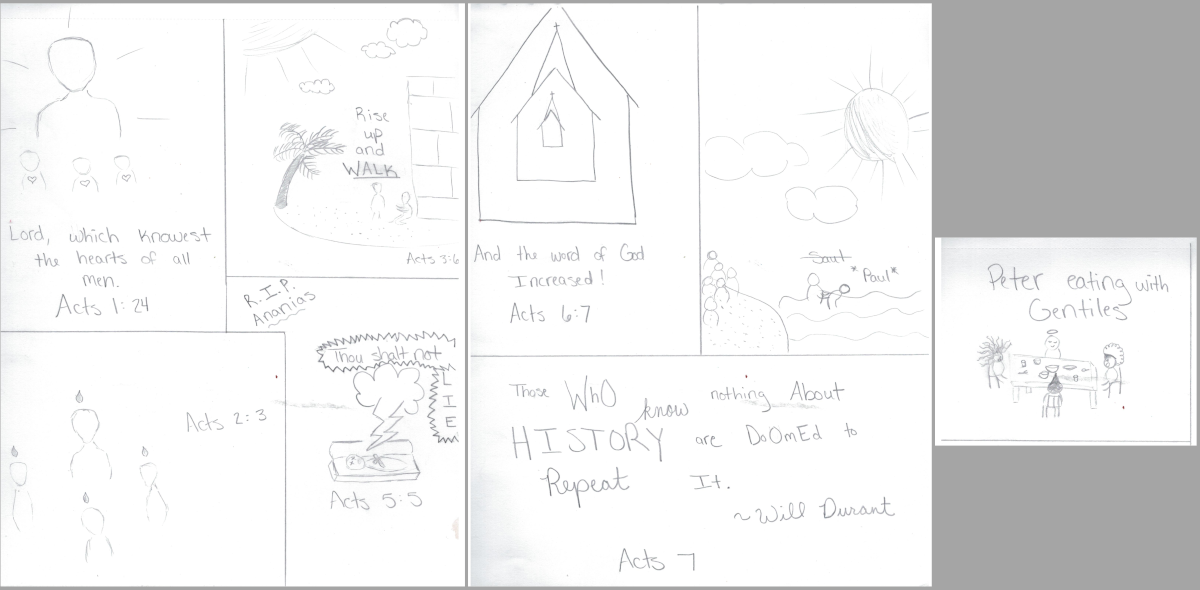 Lord, which knowest
the hearts of all
men.
Acts 1:24
Rise
up
and
WALK
Acts 3:6
Acts 2:3
R.I.P.
Ananias
Thou shalt not
LIE
Acts 5:5
And the word of God
Increased!
Acts 6:7
Saul
*Paul*
Those WhO know nothing About
HISTORY are DoOmEd to
Repeat It.
~Will Durant
Acts 7
Peter eating with
Gentiles